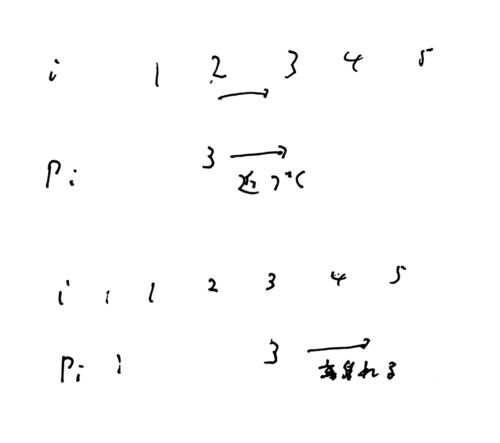 i 1 2 3 4 5
Pi 3
近づく
i 1 1 2 3 4 5
Pi 1 3
離れる